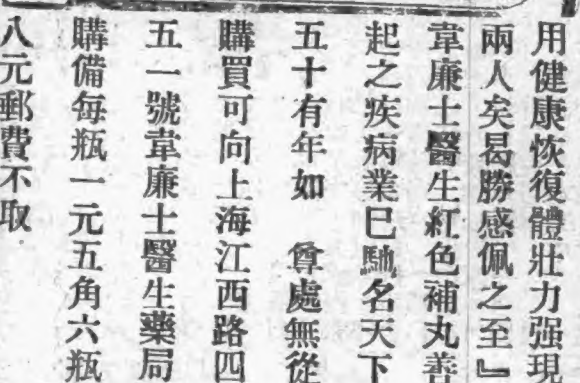 用健康恢復體壯力强現
兩人矣曷勝感佩之至』
韋廉士醫生紅色補丸善
起之疾病業已馳名天下
五十有年如　尊處無從
購買可向上海江西路四
五一號韋廉士醫生藥局
購備每瓶一元五角六瓶
八元郵費不取